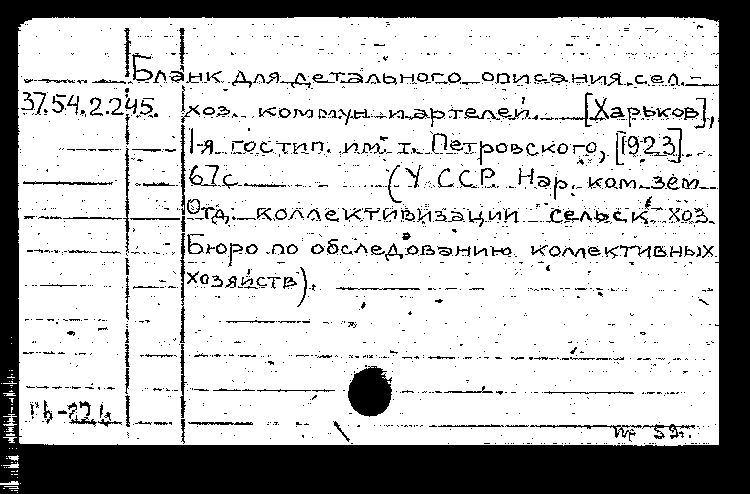 Бланк для детального описания сел.-
37.54.2.245. хоз. коммун и артелей. [Харьков],
1-я гостип. им. т. Петровского, [1923]
67с (УССР. Нар. ком. зем
Отд. коллективизации сельск. хоз.
Бюро по обследованию коллективных
хозяйств).